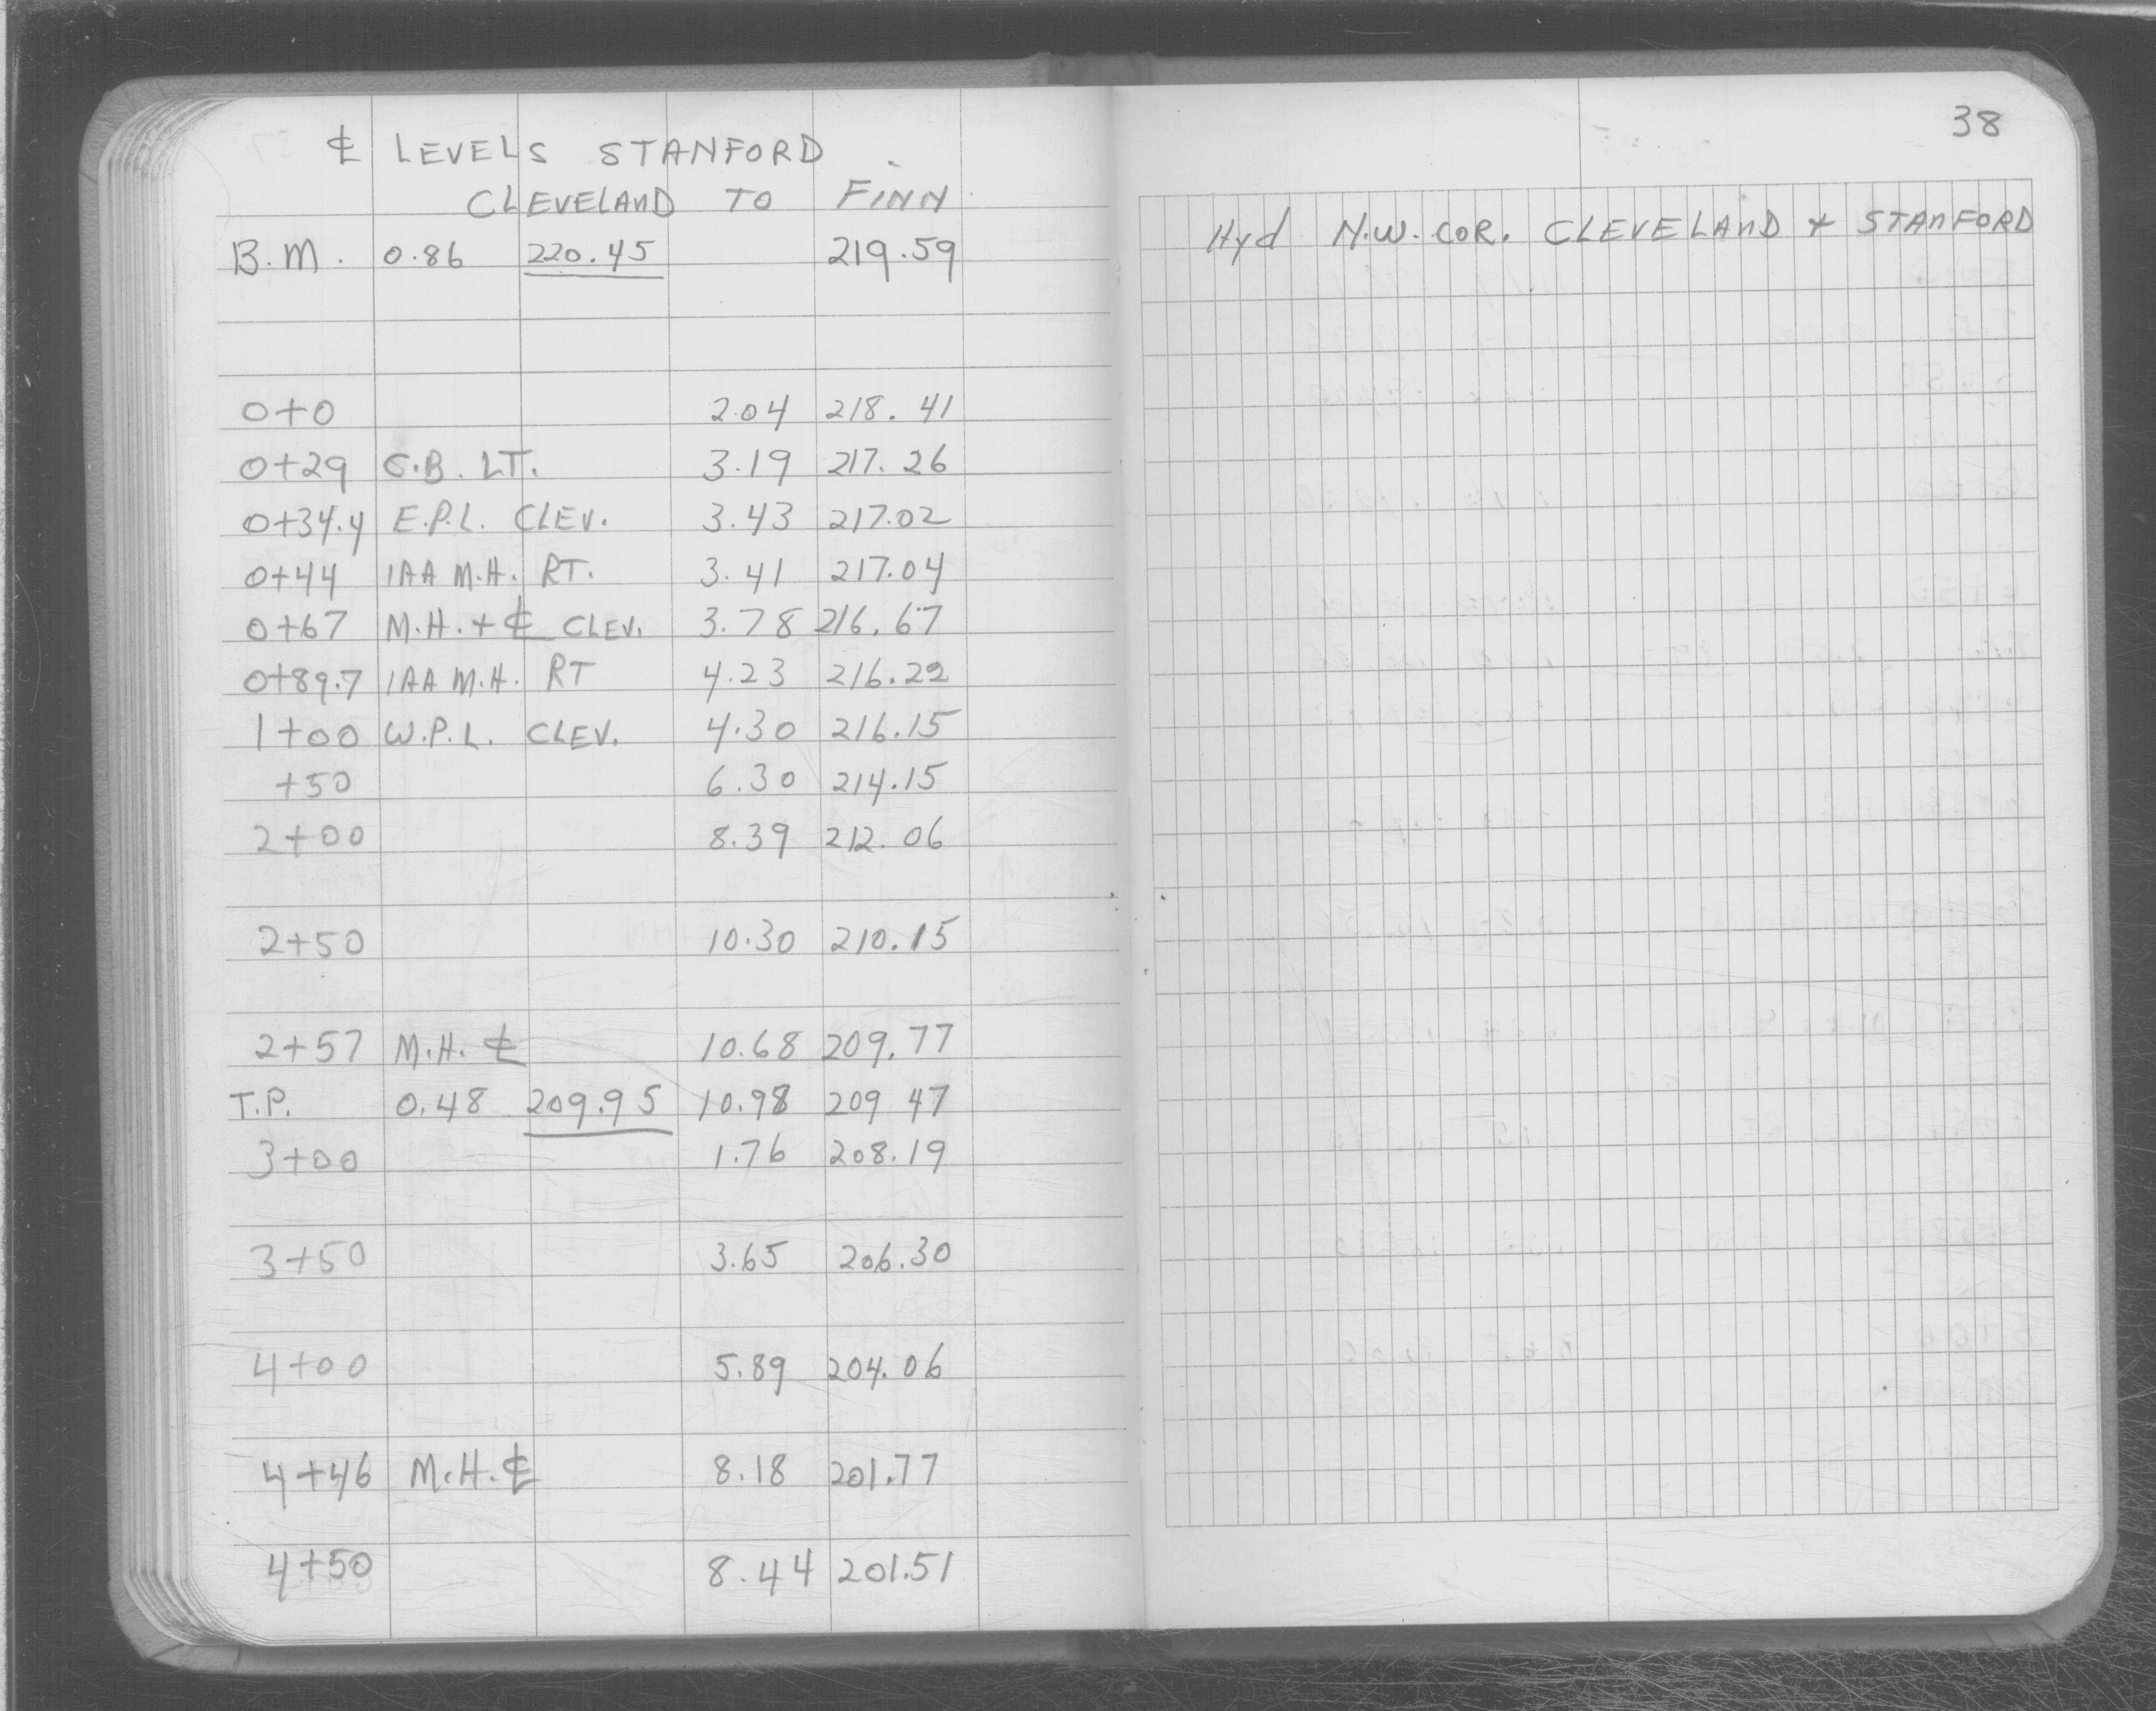 ℄ LEVELS STANFORD
CLEVELAND TO FINN
B.M. 0.86 220.45 219.59
0+0 2.04 218.41
0+29 C.B. LT. 3.19 217.26
0+34.4 E.P.L. CLEV. 3.43 217.02
0+44 1AA M.H. RT. 3.41 217.04
0+67 M.H. + ℄ CLEV. 3.78 216.67
0+89.7 1AA M.H. RT 4.23 216.22
1+00 W.P.L. CLEV. 4.30 216.15
+50 6.30 214.15
2+00 8.39 212.06
2+50 10.30 210.15
2+57 M.H. ℄ 10.68 209.77
T.P. 0.48 209.95 10.98 209 47
3+00 1.76 208.19
3+50 3.65 206.30
4+00 5.89 204.06
4+46 M.H. ℄ 8.18 201.77
4+50 8.44 201.51
38
Hyd N.W. COR. CLEVELAND + STANFORD